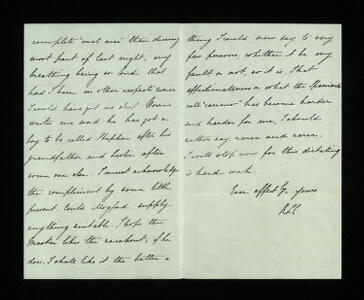 complete "mal aise" than during
most part of last night, my
breathing being so bad that
had I been in other respects easier
I would have got no sleep
write me word he has got a
boy to be called Stephen after his
grandfather and Leslie after
some one else. I must acknowledge
the compliment by some little
present. Could Mogford supply
anything suitable. I hope the
Master likes the ; if he
does. I shall like it the better a
thing I could now say to very
few persons, whether it be my
fault or not, so it is. That
affectionateness or what the Spaniards
call "carino" has become harder
and harder for me, I should
rather say rarer and rarer.
I will stop now for this dictating
is hard work.
Ever affect.ly yours